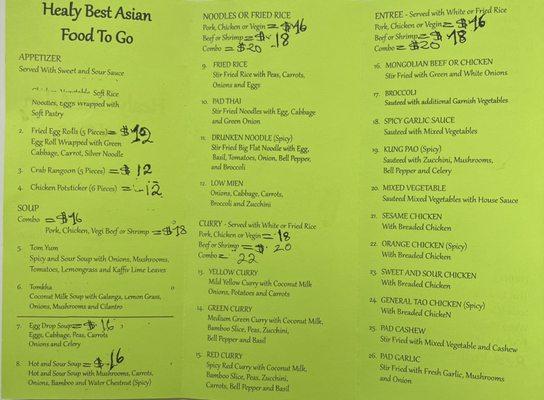 Healy Best Asian
Food To Go
APPETIZER
Served With Sweet and Sour Sauce
Soft Rice
Noodles, Eggs Wrapped with
Soft Pastry
2. Fried Egg Rolls (5 Pieces) = $12
Egg Roll Wrapped with Green
Cabbage, Carrot, Silver Noodle
3. Crab Rangoon (5 Pieces) = $ 12
4. Chicken Potsticker (6 Pieces) = 12
SOUP
Combo = $16
Pork, Chicken, Vegi Beef or Shrimp = $18
5. Tom Yum
Spicy and Sour Soup with Onions, Mushrooms,
Tomatoes, Lemongrass and Kaffiv Lime Leaves
6. Tomkha
Coconut Milk Soup with Galanga, Lemon Grass,
Onions, Mushrooms and Cilantro
7. Egg Drop Soup = $ 16
Eggs, Cabbage, Peas, Carrots
Onions and Celery
8. Hot and Sour Soup = $ .16
Hot and Sour Soup with Mushrooms, Carrots,
Onions, Bamboo and Water Chestnut (Spicy)
NOODLES OR FRIED RICE
Pork, Chicken or Vegin = $16
Beef or Shrimp = $ 18
Combo = $20
9. FRIED RICE
Stir Fried Rice with Peas, Carrots,
Onions and Eggs
10. PAD THAI
Stir Fried Noodles with Egg, Cabbage
and Green Onion
11. DRUNKEN NOODLE (Spicy)
Stir Fried Big Flat Noodle with Egg,
Basil, Tomatoes, Onion, Bell Pepper,
and Broccoli
12. LOW MIEN
Onions, Cabbage, Carrots,
Broccoli and Zucchini
CURRY - Served with White or Fried Rice
Pork, Chicken or Vegin = 18
Beef or Shrimp = $ 20
Combo = 22
13. YELLOW CURRY
Mild Yellow Curry with Coconut Milk
Onions, Potatoes and Carrots
14. GREEN CURRY
Medium Green Curry with Coconut Milk,
Bamboo Slice, Peas, Zucchini,
Bell Pepper and Basil
15. RED CURRY
Spicy Red Curry with Coconut Milk,
Bamboo Slice, Peas, Zucchini,
Carrots, Bell Pepper and Basil
ENTREE - Served with White or Fried Rice
Pork, Chicken or Vegin = $16
Beef or Shrimp = $ 18
Combo = $20
16. MONGOLIAN BEEF OR CHICKEN
Stir Fried with Green and White Onions
17. BROCCOLI
Sauteed with additional Garnish Vegetables
18. SPICY GARLIC SAUCE
Sauteed with Mixed Vegetables
19. KUNG PAO (Spicy)
Sauteed with Zucchini, Mushrooms,
Bell Pepper and Celery
20. MIXED VEGETABLE
Sauteed Mixed Vegetables with House Sauce
21. SESAME CHICKEN
With Breaded Chicken
22. ORANGE CHICKEN (Spicy)
With Breaded Chicken
23. SWEET AND SOUR CHICKEN
With Breaded Chicken
24. GENERAL TAO CHICKEN (Spicy)
With Breaded ChickeN
25. PAD CASHEW
Stir Fried with Mixed Vegetable and Cashew
26. PAD GARLIC
Stir Fried with Fresh Garlic, Mushrooms
and Onion